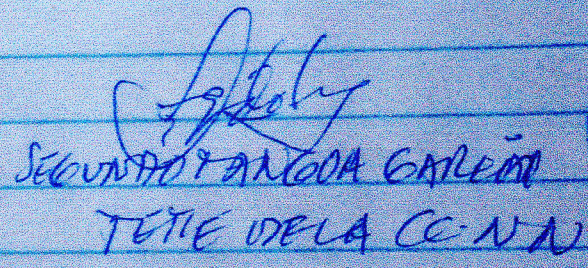 SEGUNDO TANGOA GARCÍA
TETIE DE LA CC.NN